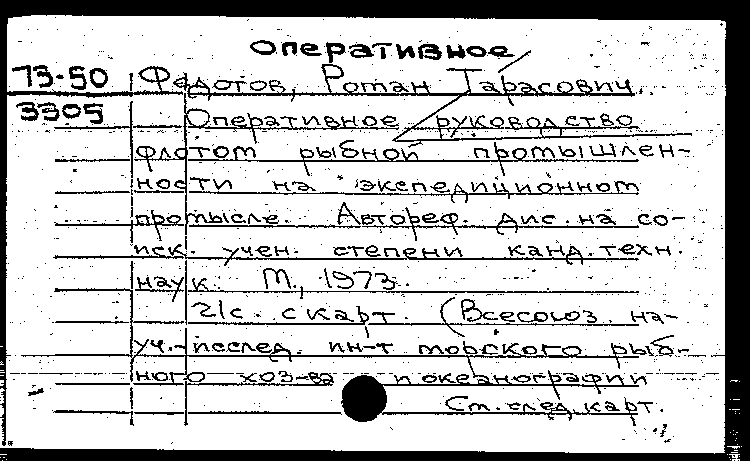 Оперативное
73-50 Федотов, Роман Тарасович.
3305 Оперативное руководство
флотом рыбной промышлен-
ности на экспедиционном
промысле. Автореф. дис. на со-
иск. учен. степени канд. техн.
наук. М., 1973.
21с. с карт. (Всесоюз. на-
уч.-исслед. ин-т морского рыб-
ного хоз-ва и океанографии
См. след. карт.